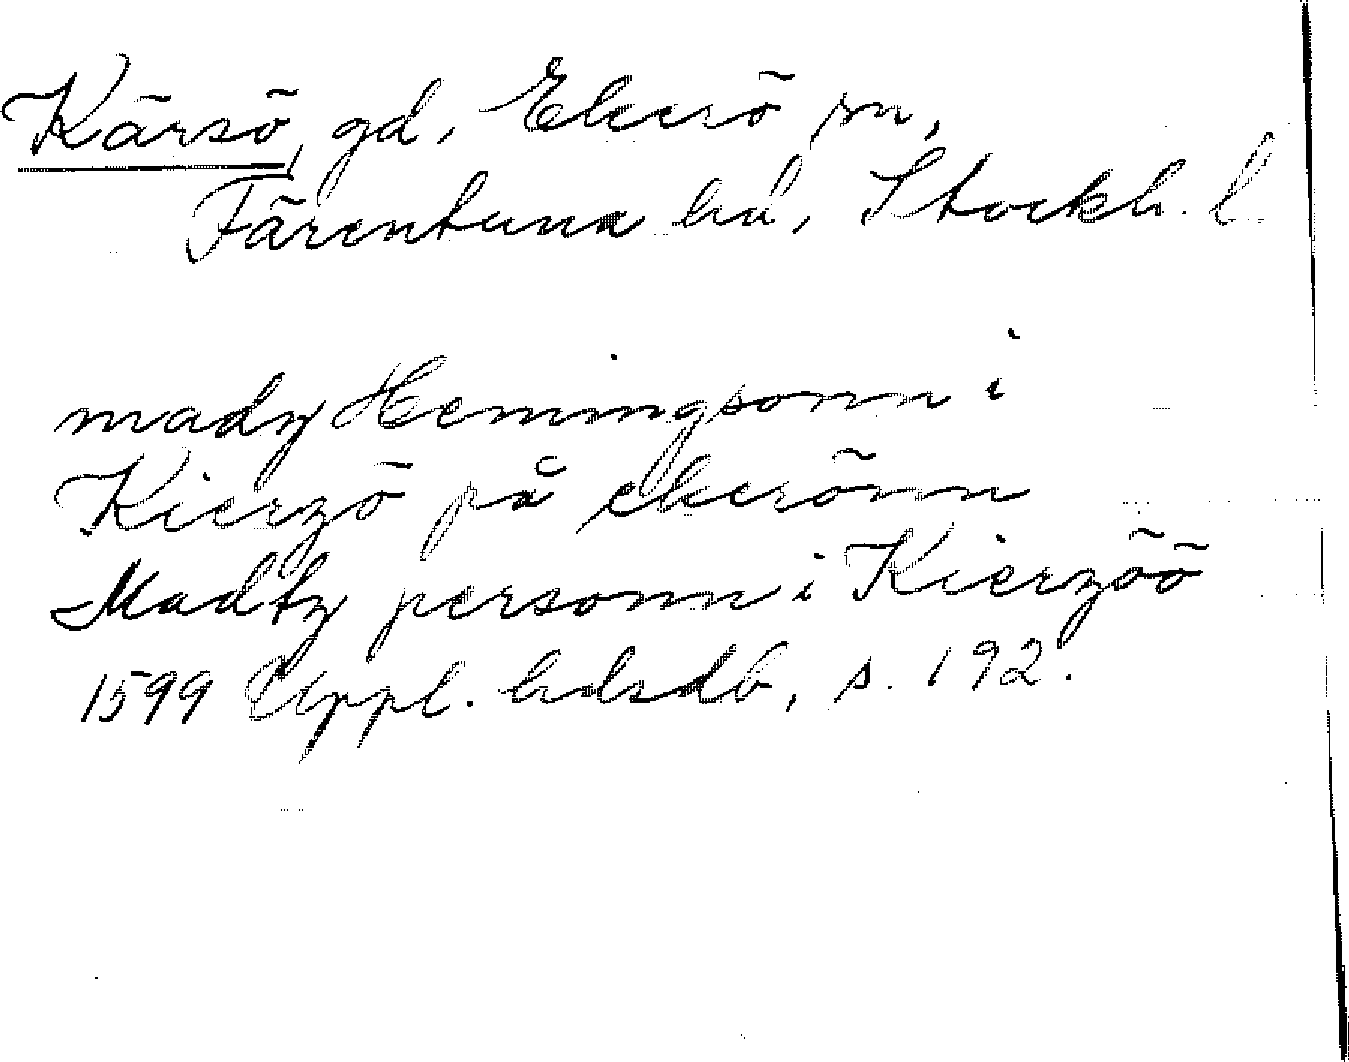 Kärsö, gd, Ekerö sn,
Färentuna hd, Stockh. l.
madz Hemingsonn i
Kierzö på ekerönn
Madtz personn i Kierzöö
1599 Uppl. hdsdb, s. 192.